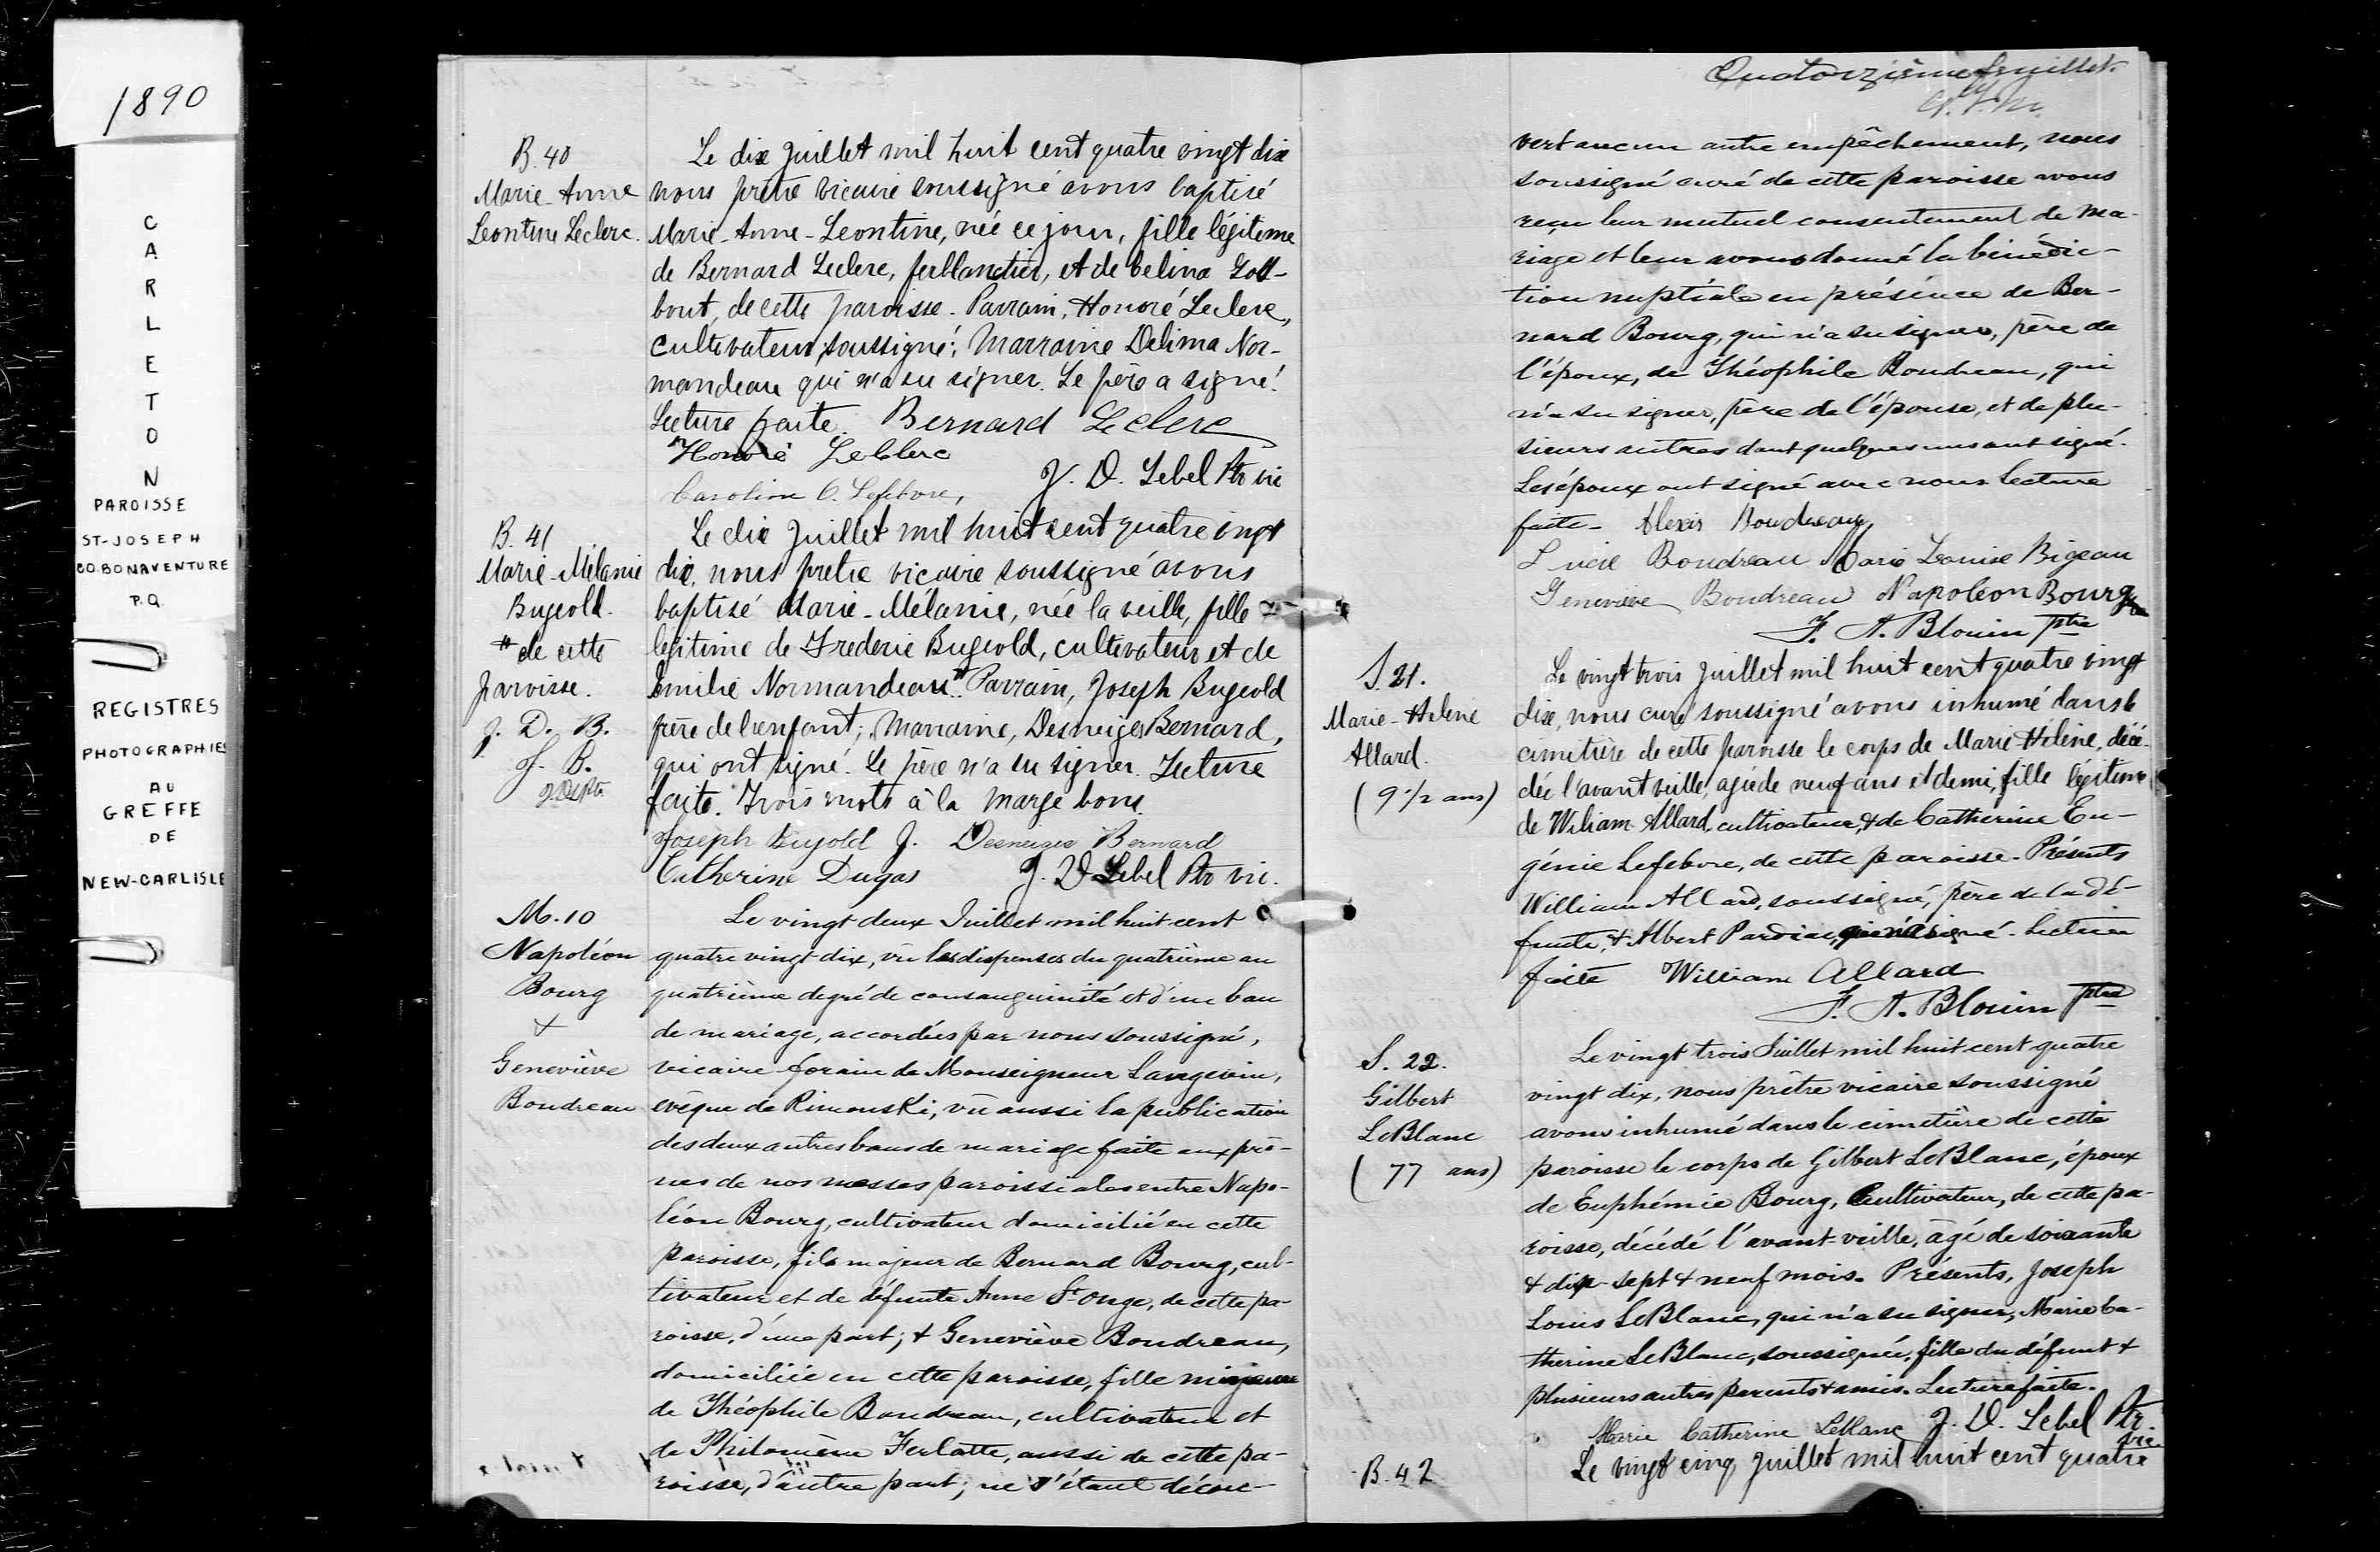 1890
C
A
R
L
E
T
O
N
PAROISSE
ST-JOSEPH
CO.BONAVENTURE
P.Q.
REGISTRES
PHOTOGRAPHIES
AU
GREFFE
DE
NEW-CARLISLE
B. 40
Marie-Anne
Leontine Leclerc.
Le dix Juillet mil huit cent quatre vingt dix
nous prêtre vicaire soussigné avons baptisé
Marie-Anne-Leontine, née ce jour, fille légitime
de Bernard Leclerc, ferblantier, et de Celina
bout, de cette paroisse. Parrain, Honoré Leclerc,
cultivateur, soussigné; Marraine Delima Nor-
mandeau qui n'a su signer. Le père a signé.
Lecture faite. Bernard Leclerc
Honoré Leclerc
Caroline C. Lefebvre, J. D. Lebel Ptr vic
B. 41
Marie-Mélanie
Bugeold.
# de cette
paroisse.
J. D. B.
J. B.
Le dix Juillet mil huit cent quatre vingt
dix, nous prêtre vicaire soussigné avons
baptisé Marie-Mélanie, née la veille, fille
legitime de Frederic Bugeold, cultivateur et de
Emilie Normandeau # Parrain, Joseph Bugeold
frère de l'enfant; Marraine, Desneiges Bernard,
qui ont signé. Le père n'a su signer. Lecture
faite. Trois mots à la marge bons.
Joseph Bujold J. Desneiges Bernard
Catherine Dugas J. D Lebel Ptr vic.
M. 10
Napoléon
Bourg
+
Geneviève
Boudreau
Le vingt deux Juillet mil huit cent
quatre vingt dix, vu les dispenses du quatrième au
quatrième degré de consanguinité et d'un ban
de mariage, accordées par nous soussigné,
vicaire forain de Monseigneur Langevin,
evêque de Rimouski, vu aussi la publication
des deux autres bans de mariage faite aux prô-
nes de nos messes paroissiales entre Napo-
léon Bourg, cultivateur domicilié en cette
paroisse, fils majeur de Bernard Bourg, cul-
tivateur et de défunte Anne St Onge, de cette pa-
roisse, d'une part; & Geneviève Boudreau,
domiciliée en cette paroisse, fille mineure
de Théophile Boudreau, cultivateur et
de Philomène Ferlatte, aussi de cette pa-
roisse, d'autre part; ne s'étant décou-
Quatorzième feuillet.
vert aucun autre empêchement, nous
soussigné curé de cette paroisse avons
reçu leur mutuel consentement de ma-
riage et leur avons donné la bénédic-
tion nuptiale en présence de Ber-
nard Bourg, qui n'a su signer, père de
l'époux, de Théophile Boudreau, qui
n'a su signer, père de l'épouse, et de plu-
sieurs autres dont quelques uns ont signé.
Les époux ont signé avec nous. Lecture
faite - Alexis Boudreau
Boudreau Marie Louise Bigeau
Geneviève Boudreau Napoléon Bourg
F. A. Blouin Ptre
S. 21.
Marie-Helene
Allard.
(9 1/2 ans)
Le vingt trois Juillet mil huit cent quatre vingt
dix, nous curé soussigné avons inhumé dans le
cimetière de cette paroisse le corps de Marie-Hélène, décé-
dée l'avant veille, agée de neuf ans et demi, fille légitime
de Wiliam Allard, cultivateur, & de Catherine Eu-
génie Lefebvre, de cette paroisse. Présents
William Allard, soussigné, père de la dé-
funte, & Albert qui n'a signé. Lecture
faite William Allard
F. A. Blouin Ptre
S. 22.
Gilbert
LeBlanc
(77 ans)
Le vingt trois Juillet mil huit cent quatre
vingt dix, nous prêtre vicaire soussigné
avons inhumé dans le cimetière de cette
paroisse le corps de Gilbert LeBlanc, époux
de Euphémie Bourg, Cultivateur, de cette pa-
roisse, décédé l'avant-veille, âgé de soixante
& dix-sept & neuf mois. Présents, Joseph
Louis LeBlanc, qui n'a su signer, Marie Ca-
therine LeBlanc, soussignée, fille du défunt &
plusieurs autres parents & amis. Lecture faite.
Marie Catherine LeBlanc J. D. Lebel Ptr
vic.
B. 42
Le vingt cinq Juillet mil huit cent quatre